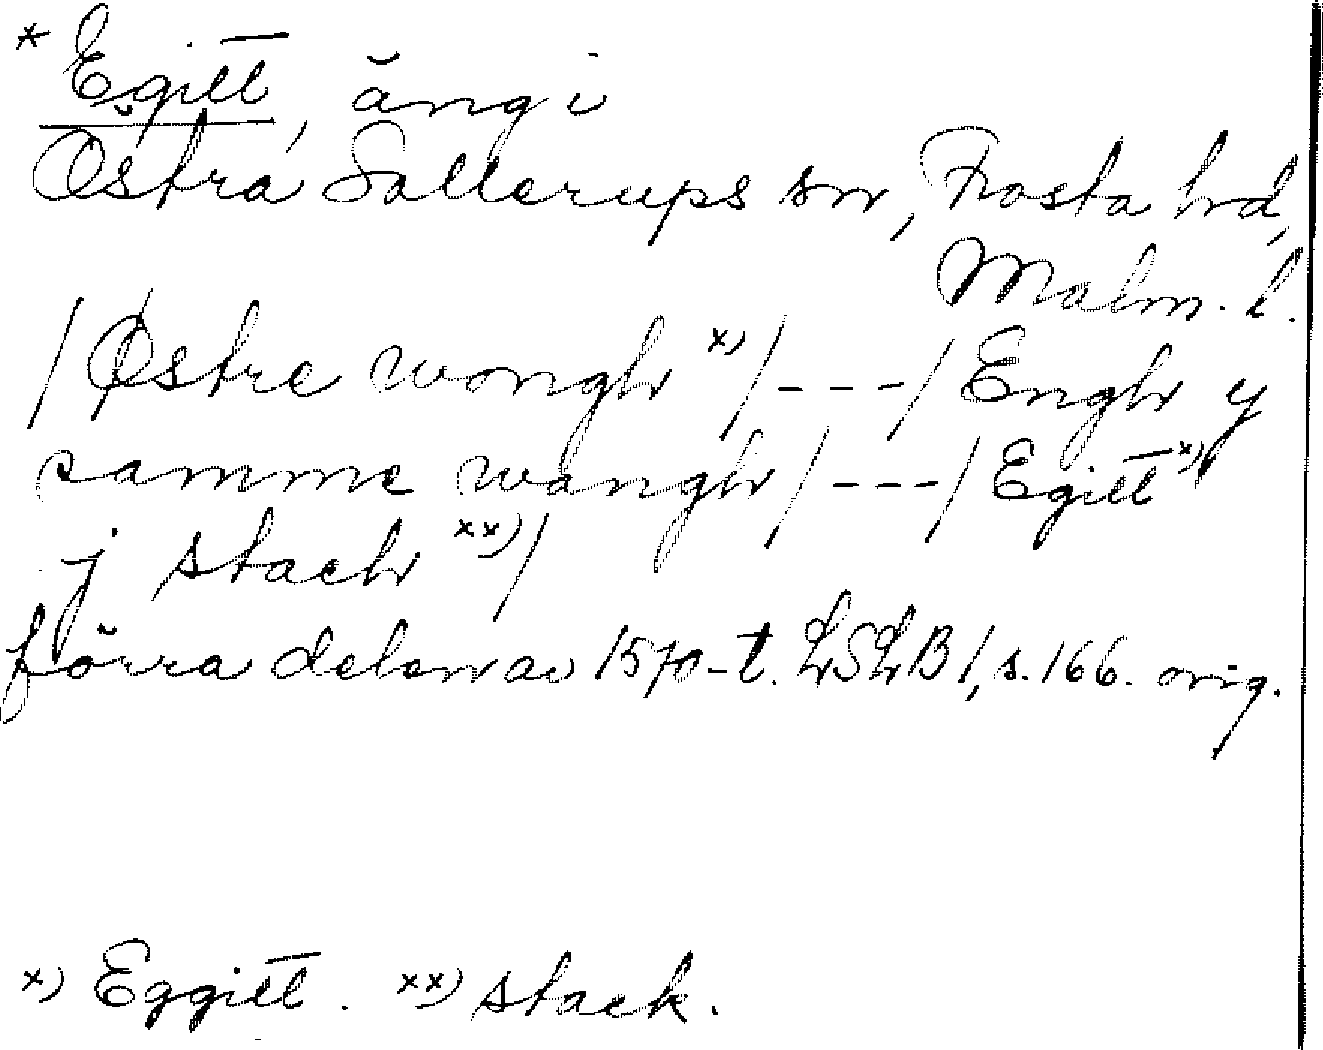 * Egitt, äng i
Östra Sallerups sn, Frosta hd,
Malm. l.
/Østre wongh x)/---/Engh y
samme wangh/---/Egitt x)
j stach xx)/
förra delen av 1570-t. LSLB 1, s. 166. orig.
x) Eggitt. xx) stack.